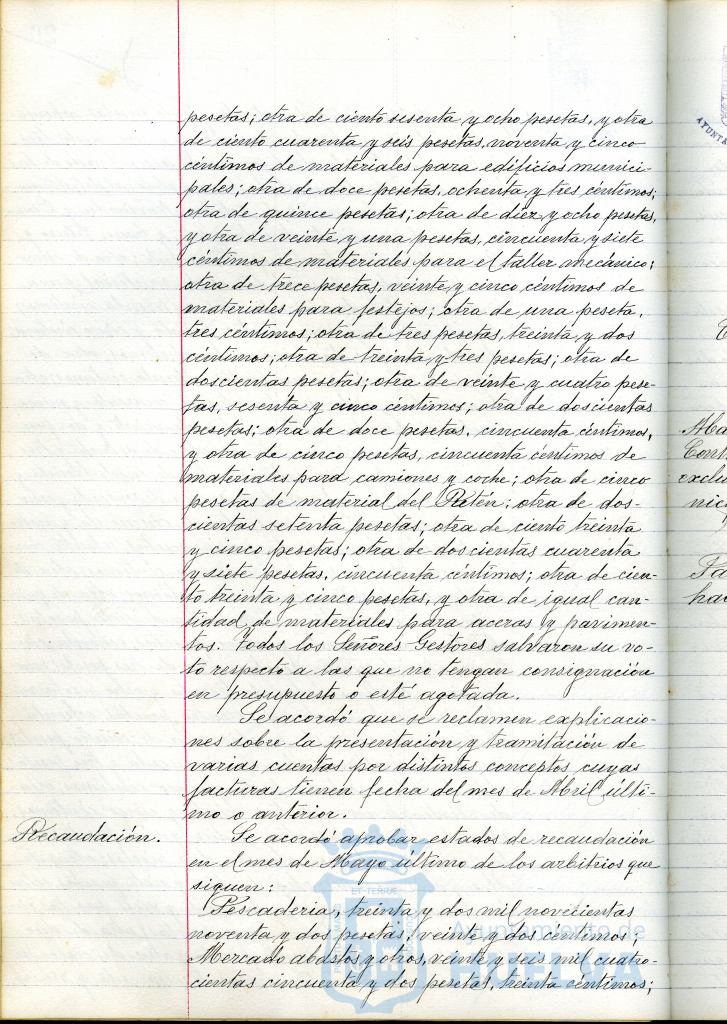 pesetas; otra de ciento sesenta y ocho pesetas, y otra
de ciento cuarenta y seis pesetas, noventa y cinco
céntimos de materiales para edificios munici-
pales; otra de doce pesetas, ochenta y tres céntimos;
otra de quince pesetas; otra de diez y ocho pesetas,
y otra de veinte y una pesetas, cincuenta y siete
céntimos de materiales para el taller mecánico;
otra de trece pesetas, veinte y cinco céntimos de
materiales para festejos; otra de una peseta,
tres céntimos; otra de tres pesetas, treinta y dos
céntimos; otra de treinta y tres pesetas; otra de
doscientas pesetas; otra de veinte y cuatro pese-
tas, sesenta y cinco céntimos; otra de doscientas
pesetas; otra de doce pesetas, cincuenta céntimos,
y otra de cinco pesetas, cincuenta céntimos de
materiales para camiones y coche; otra de cinco
pesetas de material del Retén; otra de dos-
cientas setenta pesetas; otra de ciento treinta
y cinco pesetas; otra de doscientas cuarenta
y siete pesetas, cincuenta céntimos; otra de cien-
to treinta y cinco pesetas, y otra de igual can-
tidad de materiales para aceras y pavimen-
tos. Todos los Señores Gestores salvaron su vo-
to respecto a las que no tengan consignación
en presupuesto o esté agotada.
Se acordó que se reclamen explicacio-
nes sobre la presentación y tramitación de
varias cuentas por distintos conceptos cuyas
facturas tienen fecha del mes de Abril últi-
mo o anterior.
Recaudación.
Se acordó aprobar estados de recaudación
en el mes de Mayo último de los arbitrios que
siguen:
Pescaderia, treinta y dos mil novecientas
noventa y dos pesetas, veinte y dos céntimos;
Mercado abastos y otros, veinte y seis mil cuatro-
cientas cincuenta y dos pesetas, treinta céntimos;
Ayuntamiento de
HUELVA